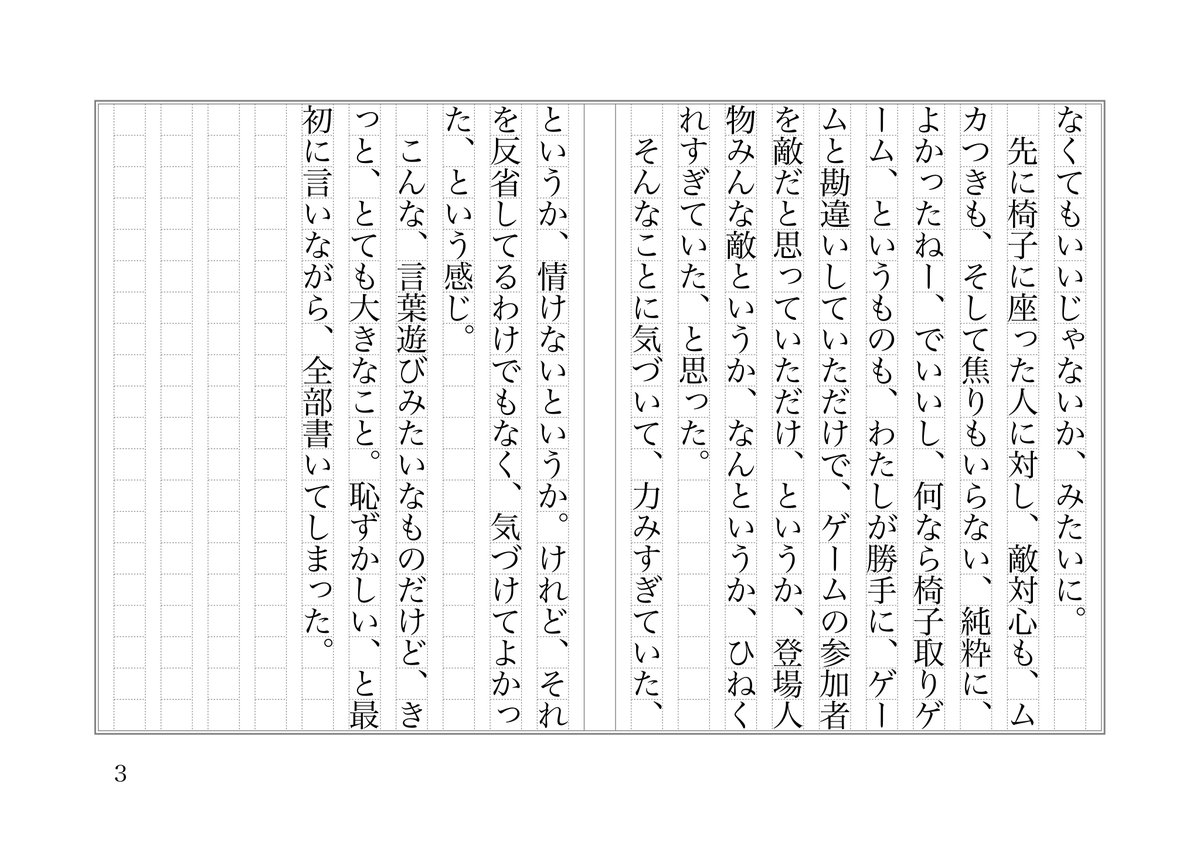 なくてもいいじゃないか、みたいに。
　先に椅子に座った人に対し、敵対心も、ム
カつきも、そして焦りもいらない、純粋に、
よかったねー、でいいし、何なら椅子取りゲ
ーム、というものも、わたしが勝手に、ゲー
ムと勘違いしていただけで、ゲームの参加者
を敵だと思っていただけ、というか、登場人
物みんな敵というか、なんというか、ひねく
れすぎていた、と思った。
　そんなことに気づいて、力みすぎていた、
というか、情けないというか。けれど、それ
を反省してるわけでもなく、気づけてよかっ
た、という感じ。
　こんな、言葉遊びみたいなものだけど、き
っと、とても大きなこと。恥ずかしい、と最
初に言いながら、全部書いてしまった。
3